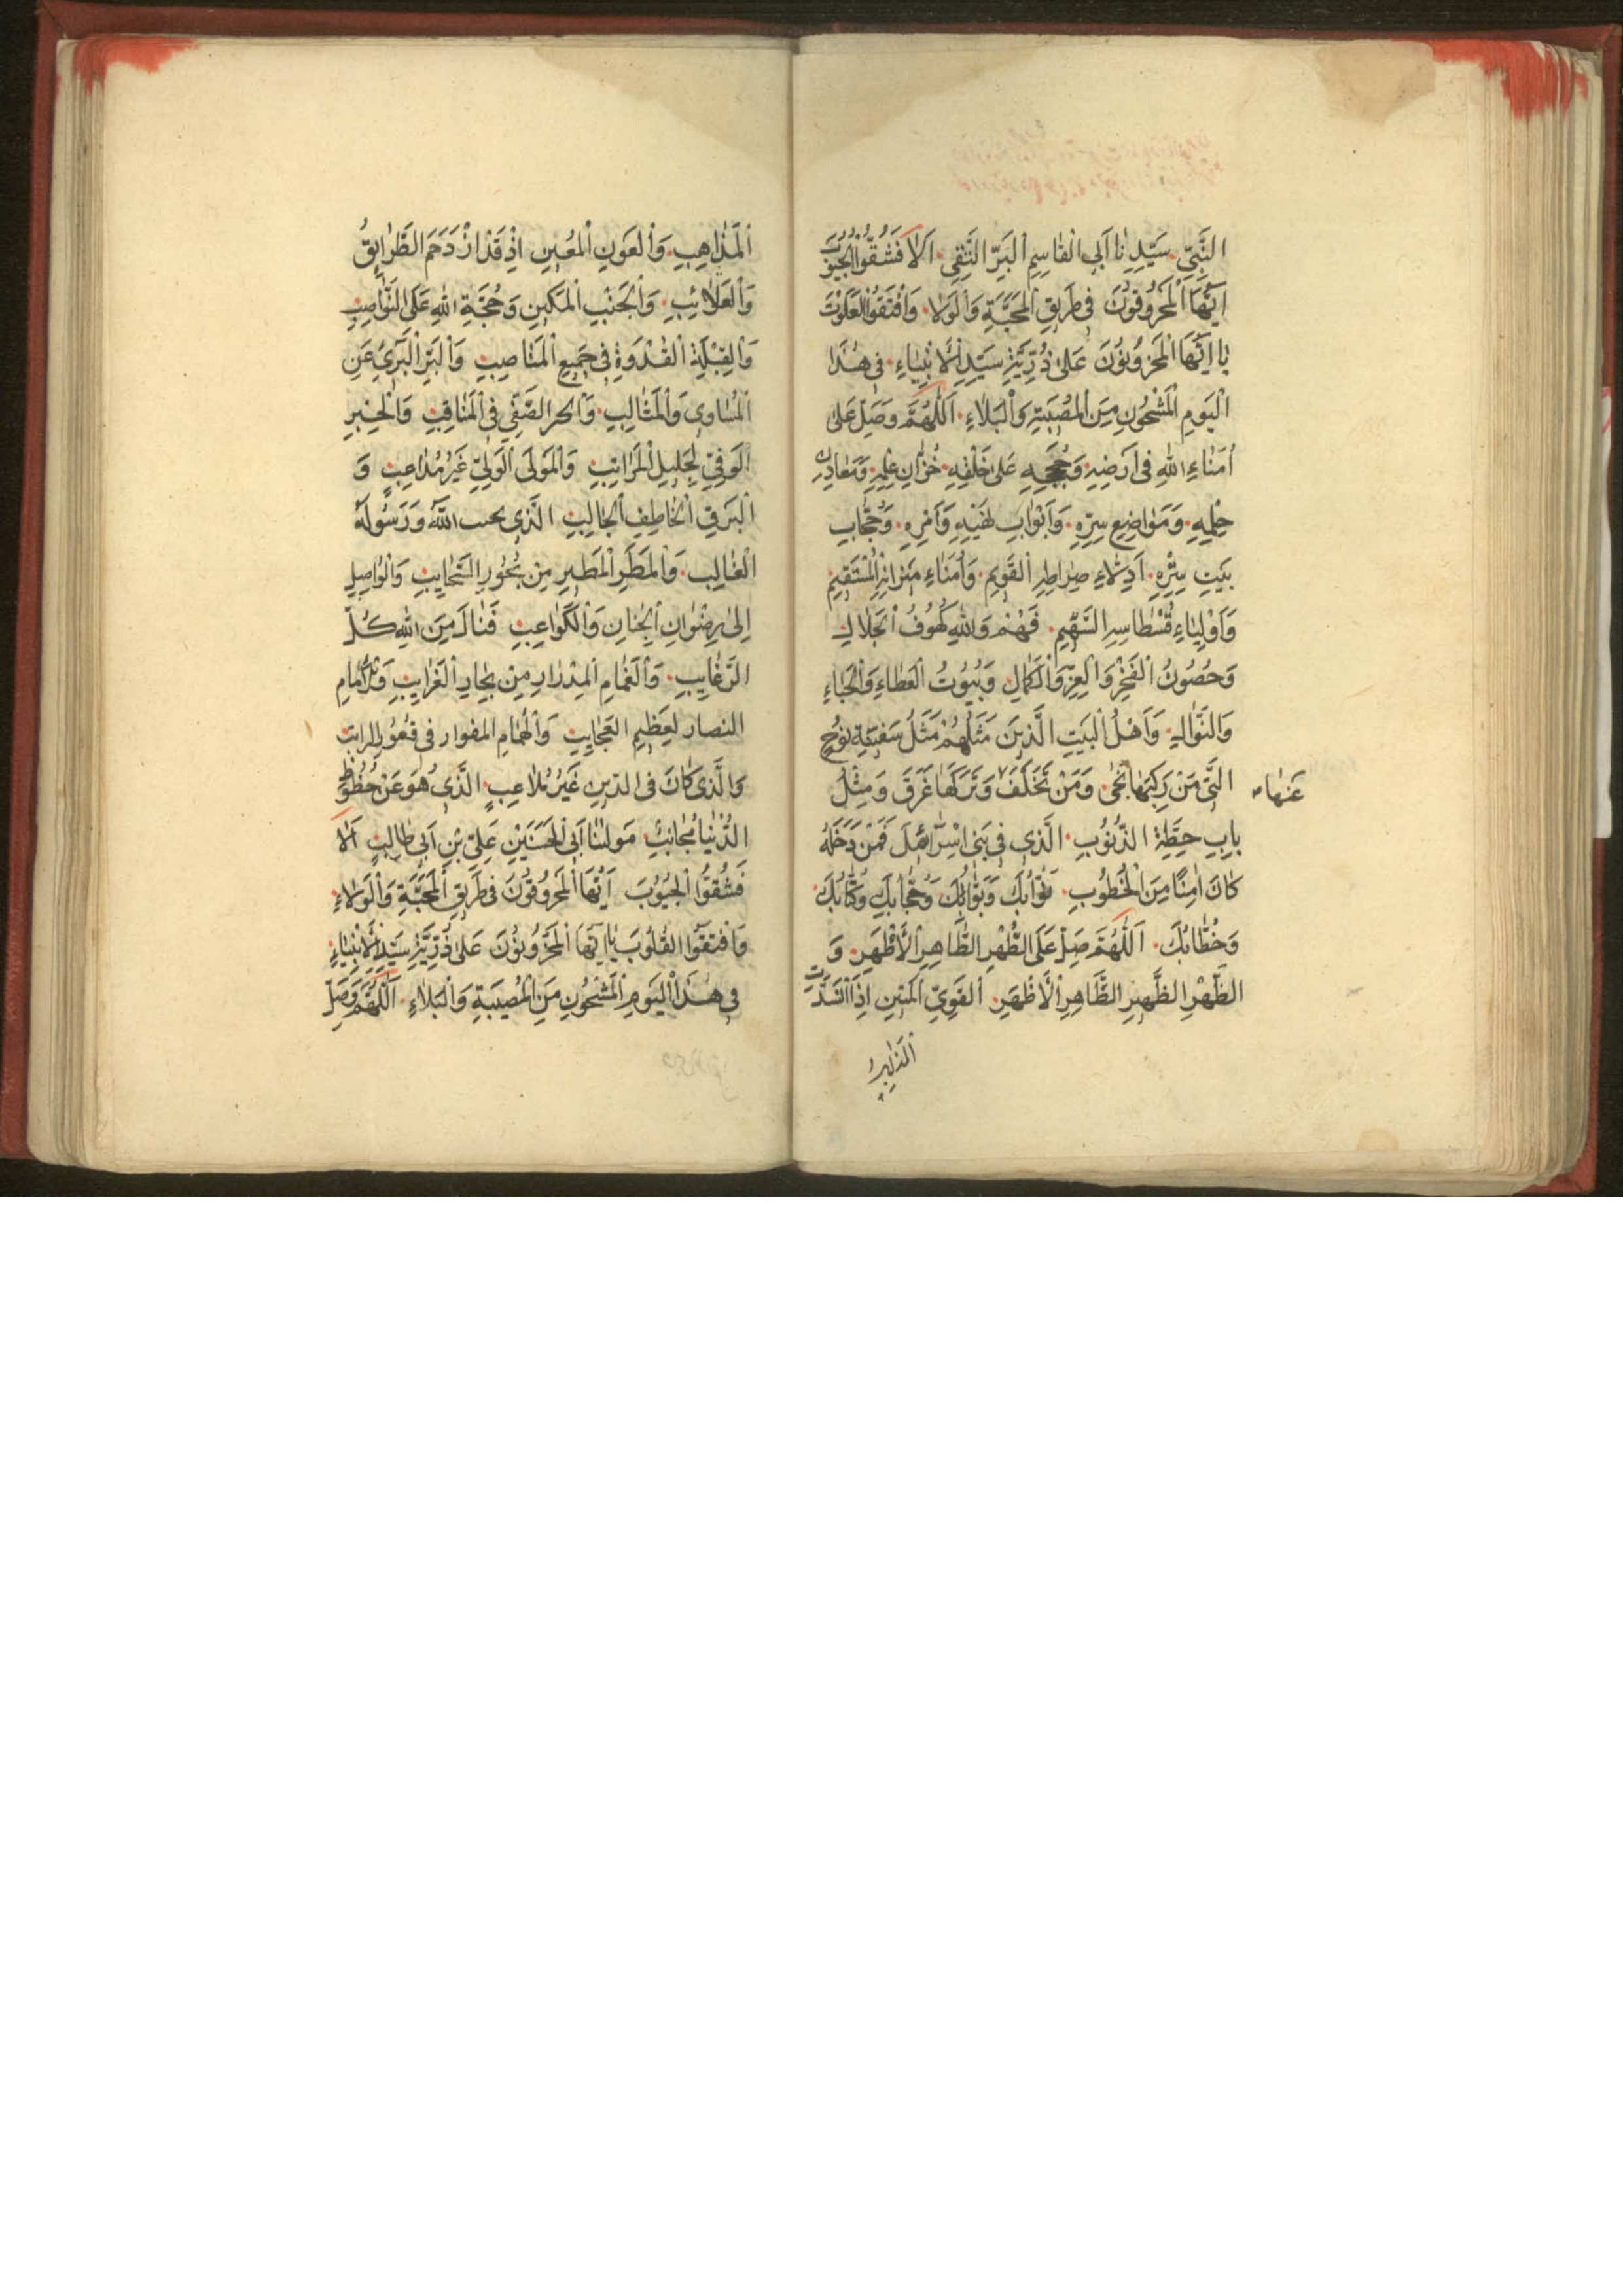 النَّبِيِّ. سَيِّدِنَا اَبِي الْقَاسِمِ الْبَرِّ التَّقِي. اَلَا فَشُقُّوا الْجُيُوبَ
اَيُّهَا الْمَحْرُوقُونَ فِي طَرِيقِ الْمَحَبَّةِ وَالْوَلَا. وَافْتَقُوا
يَا اَيُّهَا الْمَحْزُونُونَ عَلَى ذُرِّيَّةِ سَيِّدِ الْاَنْبِيَاءِ. فِي هٰذَا
الْيَوْمِ الْمَشْحُونِ مِنَ الْمُصِيبَةِ وَالْبَلَاءِ. اَللّٰهُمَّ وَصَلِّ عَلَى
اُمَنَاءِ اللهِ فِي اَرْضِهِ. وَحُجَجِهِ عَلَى خَلْقِهِ. خُزَّانِ عِلْمِهِ. وَمَعَادِنِ
حِلْمِهِ. وَمَوَاضِعِ سِرِّهِ. وَاَبْوَابِ نَهْيِهِ وَاَمْرِهِ. وَحُجَّابِ
بَيْتِ سِتْرِهِ. اَدِلَّاءِ صِرَاطِهِ الْقَوِيمِ. وَاُمَنَاءِ مِيزَانِهِ الْمُسْتَقِيمِ
وَاَوْلِيَاءِ قُسْطَاسِهِ السَّهِيمِ. فَهُمْ وَاللهِ كُهُوفُ الْجَلَالِ
وَحُصُونُ الْفَخْرِ وَالْعِزِّ وَالْكَمَالِ وَبُيُوتُ الْعَطَاءِ وَالْحَبَاءِ
وَالنَّوَالِ. وَاَهْلُ الْبَيْتِ الَّذِينَ مَثَلُهُمْ مَثَلُ سَفِينَةِ نُوحٍ
الَّتِي مَنْ رَكِبَهَا نَجَى. وَمَنْ تَخَلَّفَ وَتَرَكَهَا غَرَقَ وَمِثْلُ
عَنْهَا
بَابِ حِطَّةِ الذُّنُوبِ. الَّذِي فِي بَنِي اِسْرَائِيلَ فَمَنْ دَخَلَهُ
كَانَ اٰمِنًا مِنَ الْخُطُوبِ. نُوَّابُكَ وَبَوَّابُكَ وَحُجَّابُكَ وَكُتَّابُكَ
وَخُطَّابُكَ. اَللّٰهُمَّ صَلِّ عَلَى الطُّهْرِ الطَّاهِرِ الْاَطْهَرِ. وَ
الظَّهْرِ الظَّهِيرِ الظَّاهِرِ الْاَظْهَرِ. الْقَوِيِّ الْمَتِينِ اِذَا انْسَدَّتِ
الْمَذَاهِبُ
الْمَذَاهِبِ. وَالْعَوْنِ الْمُعِينِ اِذْ قَدْ ازْدَحَمَ الطَّرَائِقُ
وَالْجَنْبِ الْمَكِينِ وَحُجَّةِ اللهِ عَلَى النَّوَاصِبِ
وَالْقِبْلَةِ الْقُدْوَةِ فِي جَمِيعِ الْمَنَاصِبِ وَالْبَرِّ الْبَرِيِّ عَنِ
الْمَسَاوِي وَالْمَثَالِبِ. الصَّفِيِّ فِي الْمَنَاقِبِ وَالْخَبِيرِ
الْوَفِيِّ لِجَلِيلِ الْمَرَاتِبِ وَالْمَوْلَى الْوَلِيِّ غَيْرُ مُدَاعِبٍ وَ
الْبَرْقِ الْخَاطِفِ الْجَالِبِ الَّذِي يحب اللهَ وَرَسُولَهُ
الْغَالِبِ. وَالْمَطَرِ الْمَطِيرِ مِنْ بُحُورِ السَّحَايِبِ وَالْوَاصِلِ
اِلَى رِضْوَانِ الْجِنَانِ وَالْكَوَاعِبِ فَنَالَ مِنَ اللهِ كُلَّ
الرَّغَايِبِ. وَالْغَمَامِ الْمِدْرَارِ مِنْ بِحَارِ الْغَرَايِبِ
لِعَظِيمِ الْعَجَايِبِ وَالْهُمَامِ المغوار فِي
وَالَّذِي كَانَ فِي الدِّينِ غَيْرُ مُلَاعِبٍ. الَّذِي هُوَ عَنْ حُظُوظِ
الدُّنْيَا مُجَانِبٌ. مَوْلٰنَا اَبِي الْحَسَنَيْنِ عَلِيِّ بْنِ اَبِي طَالِبٍ اَلَا
فَشُقُّوا الْجُيُوبَ اَيُّهَا الْمَحْرُوقُونَ فِي طَرِيقِ الْمَحَبَّةِ وَالْوَلَاءِ.
وَافْتَقُوا الْقُلُوبَ يَا اَيُّهَا الْمَحْزُونُونَ عَلَى ذُرِّيَّةِ سَيِّدِ الْاَنْبِيَاءِ.
فِي هٰذَا الْيَوْمِ الْمَشْحُونِ مِنَ الْمُصِيبَةِ وَالْبَلَاءِ. اَللّٰهُمَّ وَصَلِّ